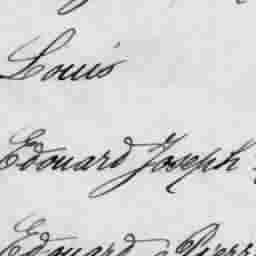 Louis
Edouard Joseph
Edouard Pierre